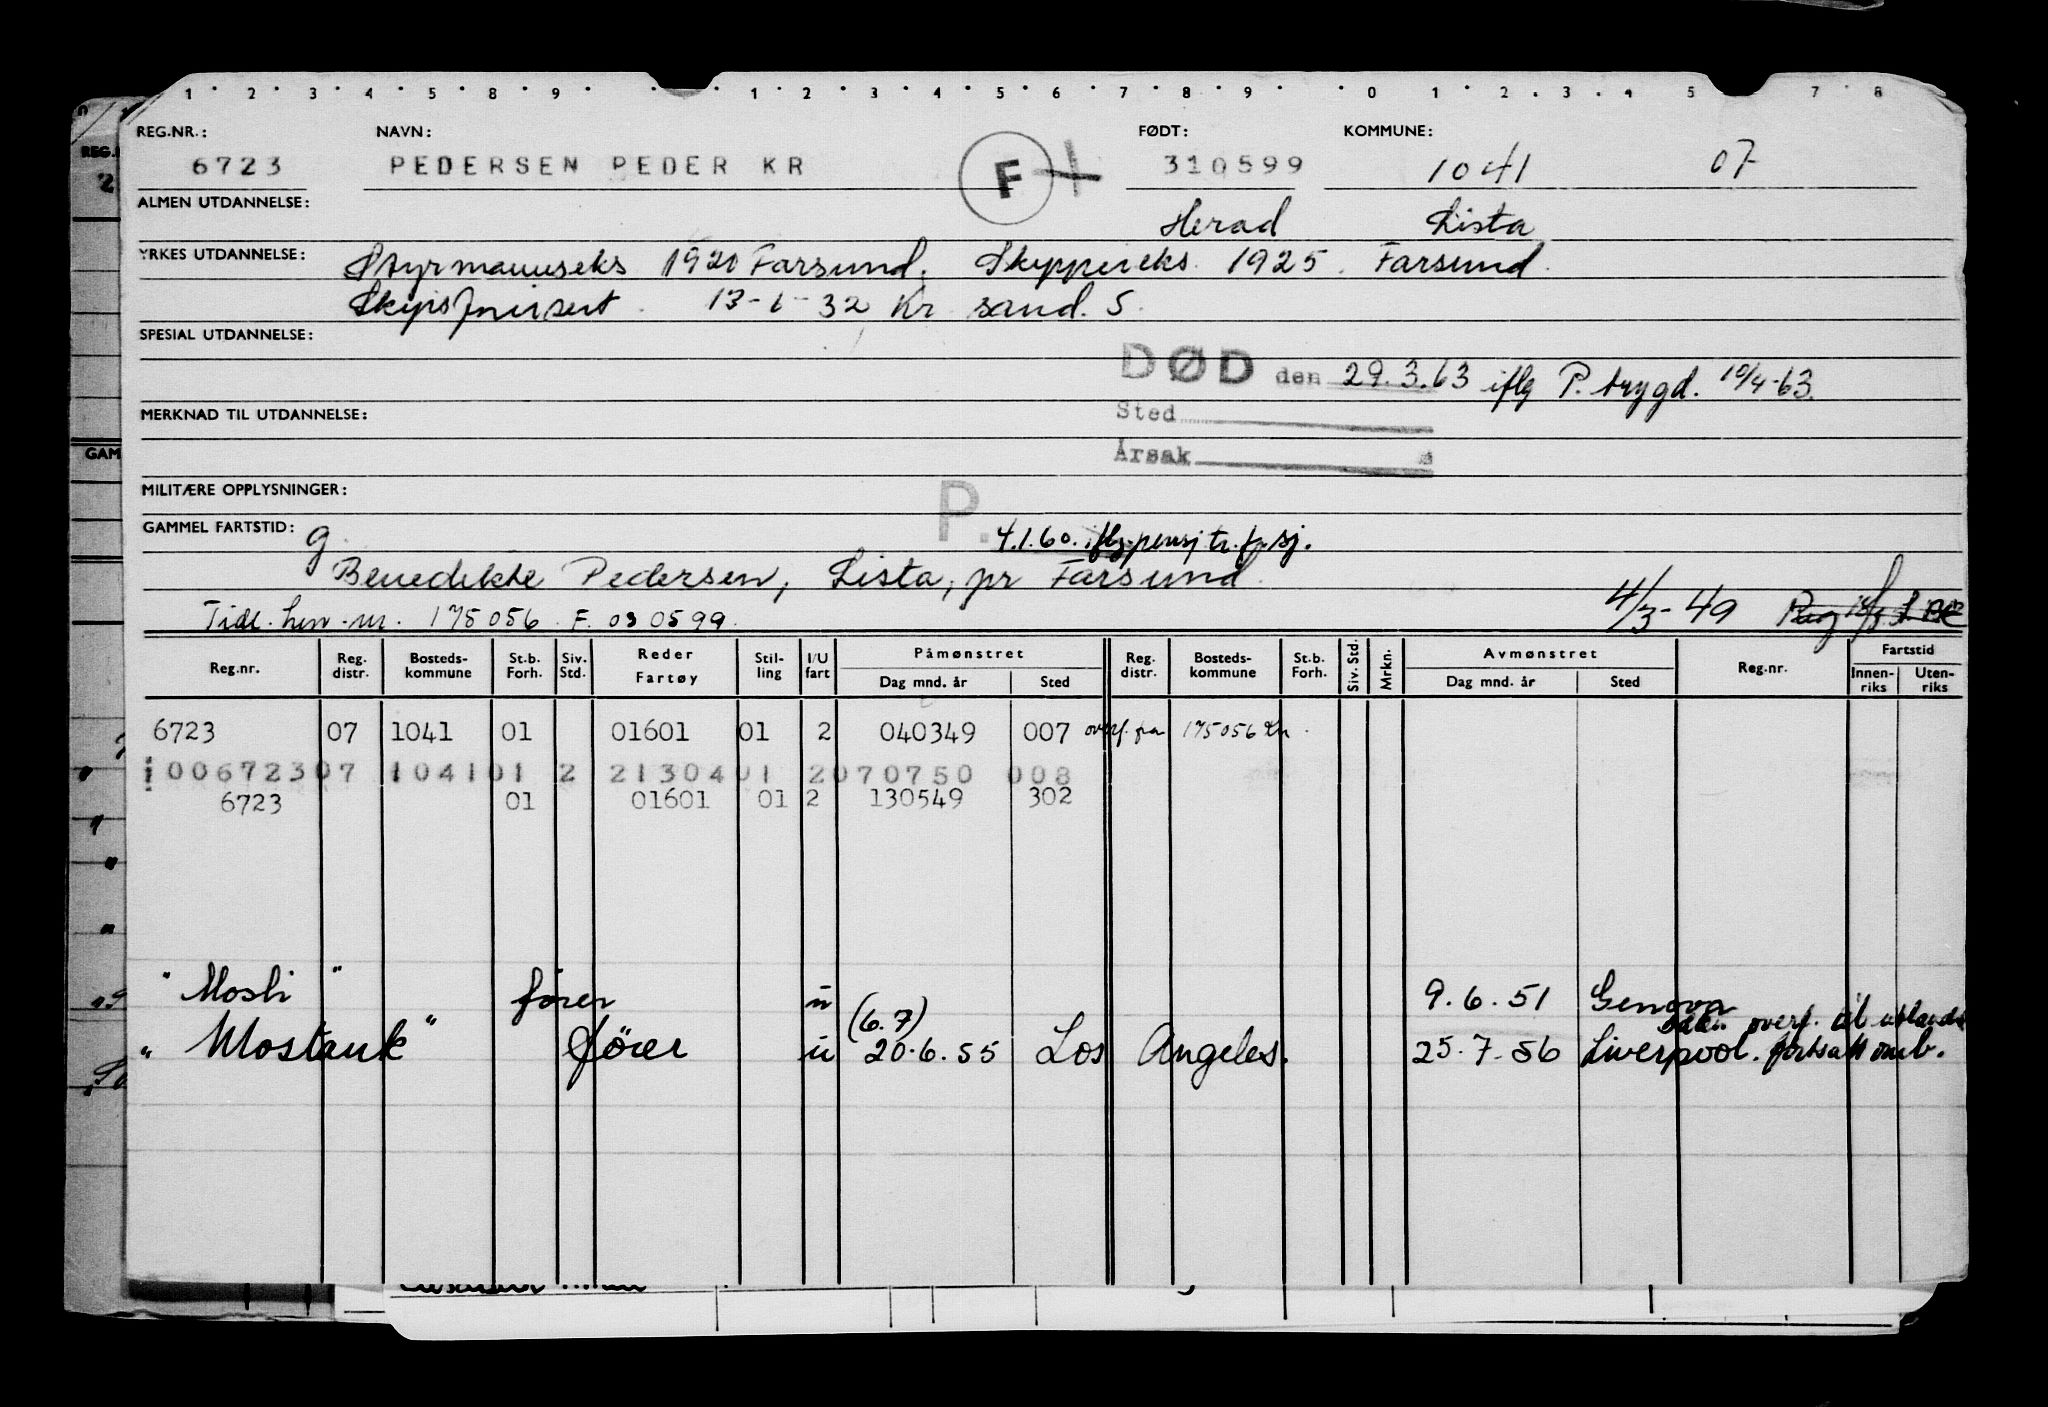 1 2 3 4 5 8 9 1 2 3 4 5 6 7 8 9 0 1 2 3 4 5 7 8
REG.NR.: NAVN: FØDT: KOMMUNE:
6723 PEDERSEN PEDER KR F 310599 1041 07
ALMEN UTDANNELSE: Herad Lista
YRKES UTDANNELSE: Styrmannseks 1920 Farsund. Skippereks. 1925. Farsund.
13-1-32 Kr sand. S.
SPESIAL UTDANNELSE:
DØD den 29.3.63 iflg P. trygd. 10/4-63.
MERKNAD TIL UTDANNELSE: Sted
Årsak
MILITÆRE OPPLYSNINGER:
GAMMEL FARTSTID: g. P. 4.1.60. iflg. pensj tr. f. sj.
Benedikte Pedersen, Lista, pr Farsund.
Tidl. hen. nr. 175056. F. 030599. 4/3-49
Reg.nr. Reg. distr. Bosteds-kommune St.b. Forh. Siv. Std. Reder Fartøy Stil-ling I/U fart Påmønstret Dag mnd. år Sted Reg. distr. Bosteds-kommune St.b. Forh. Siv. Std. Mrkn. Avmønstret Dag mnd. år Sted Reg.nr. Fartstid Innen-riks Uten-riks
6723 07 1041 01 01601 01 2 040349 007 overf. fra 175056
100672307 104101 2 2130401 2070750 008
6723 01 01601 01 2 130549 302
"Mosli" fører u 9.6.51 Genova
(6.7) overf. til utlandet
"Mostank" fører u 20.6.55 Los Angeles. 25.7.56 Liverpool. fortsatt omb.